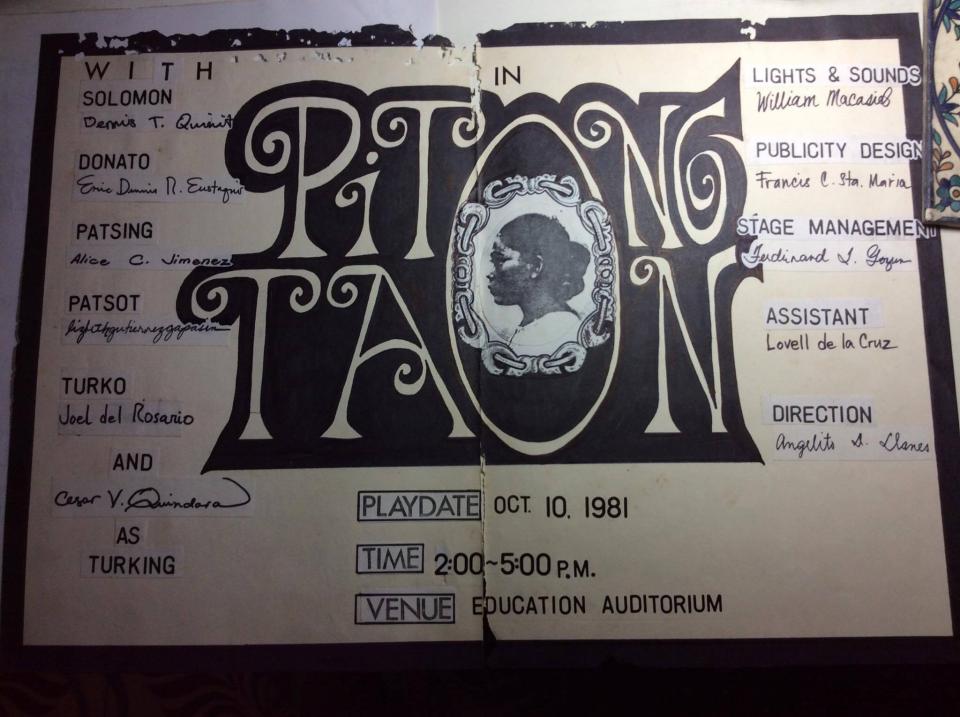 WITH
SOLOMON
Dennis T. Quinit
DONATO
Eric Dennis R. Eustaquio
PATSING
Alice C. Jimenez
PATSOT
TURKO
Joel del Rosario
AND
Cesar V. Quindara
AS
TURKING
IN
PiTONG
TAON
PLAYDATE OCT. 10. 1981
TIME 2:00~5:00 P.M.
VENUE EDUCATION AUDITORIUM
LIGHTS & SOUNDS
William Macasieb
PUBLICITY DESIGN
Francis C. Sta. Maria
STAGE MANAGEMENT
Ferdinand
ASSISTANT
Lovell de la Cruz
DIRECTION
Angelito S. Llanes